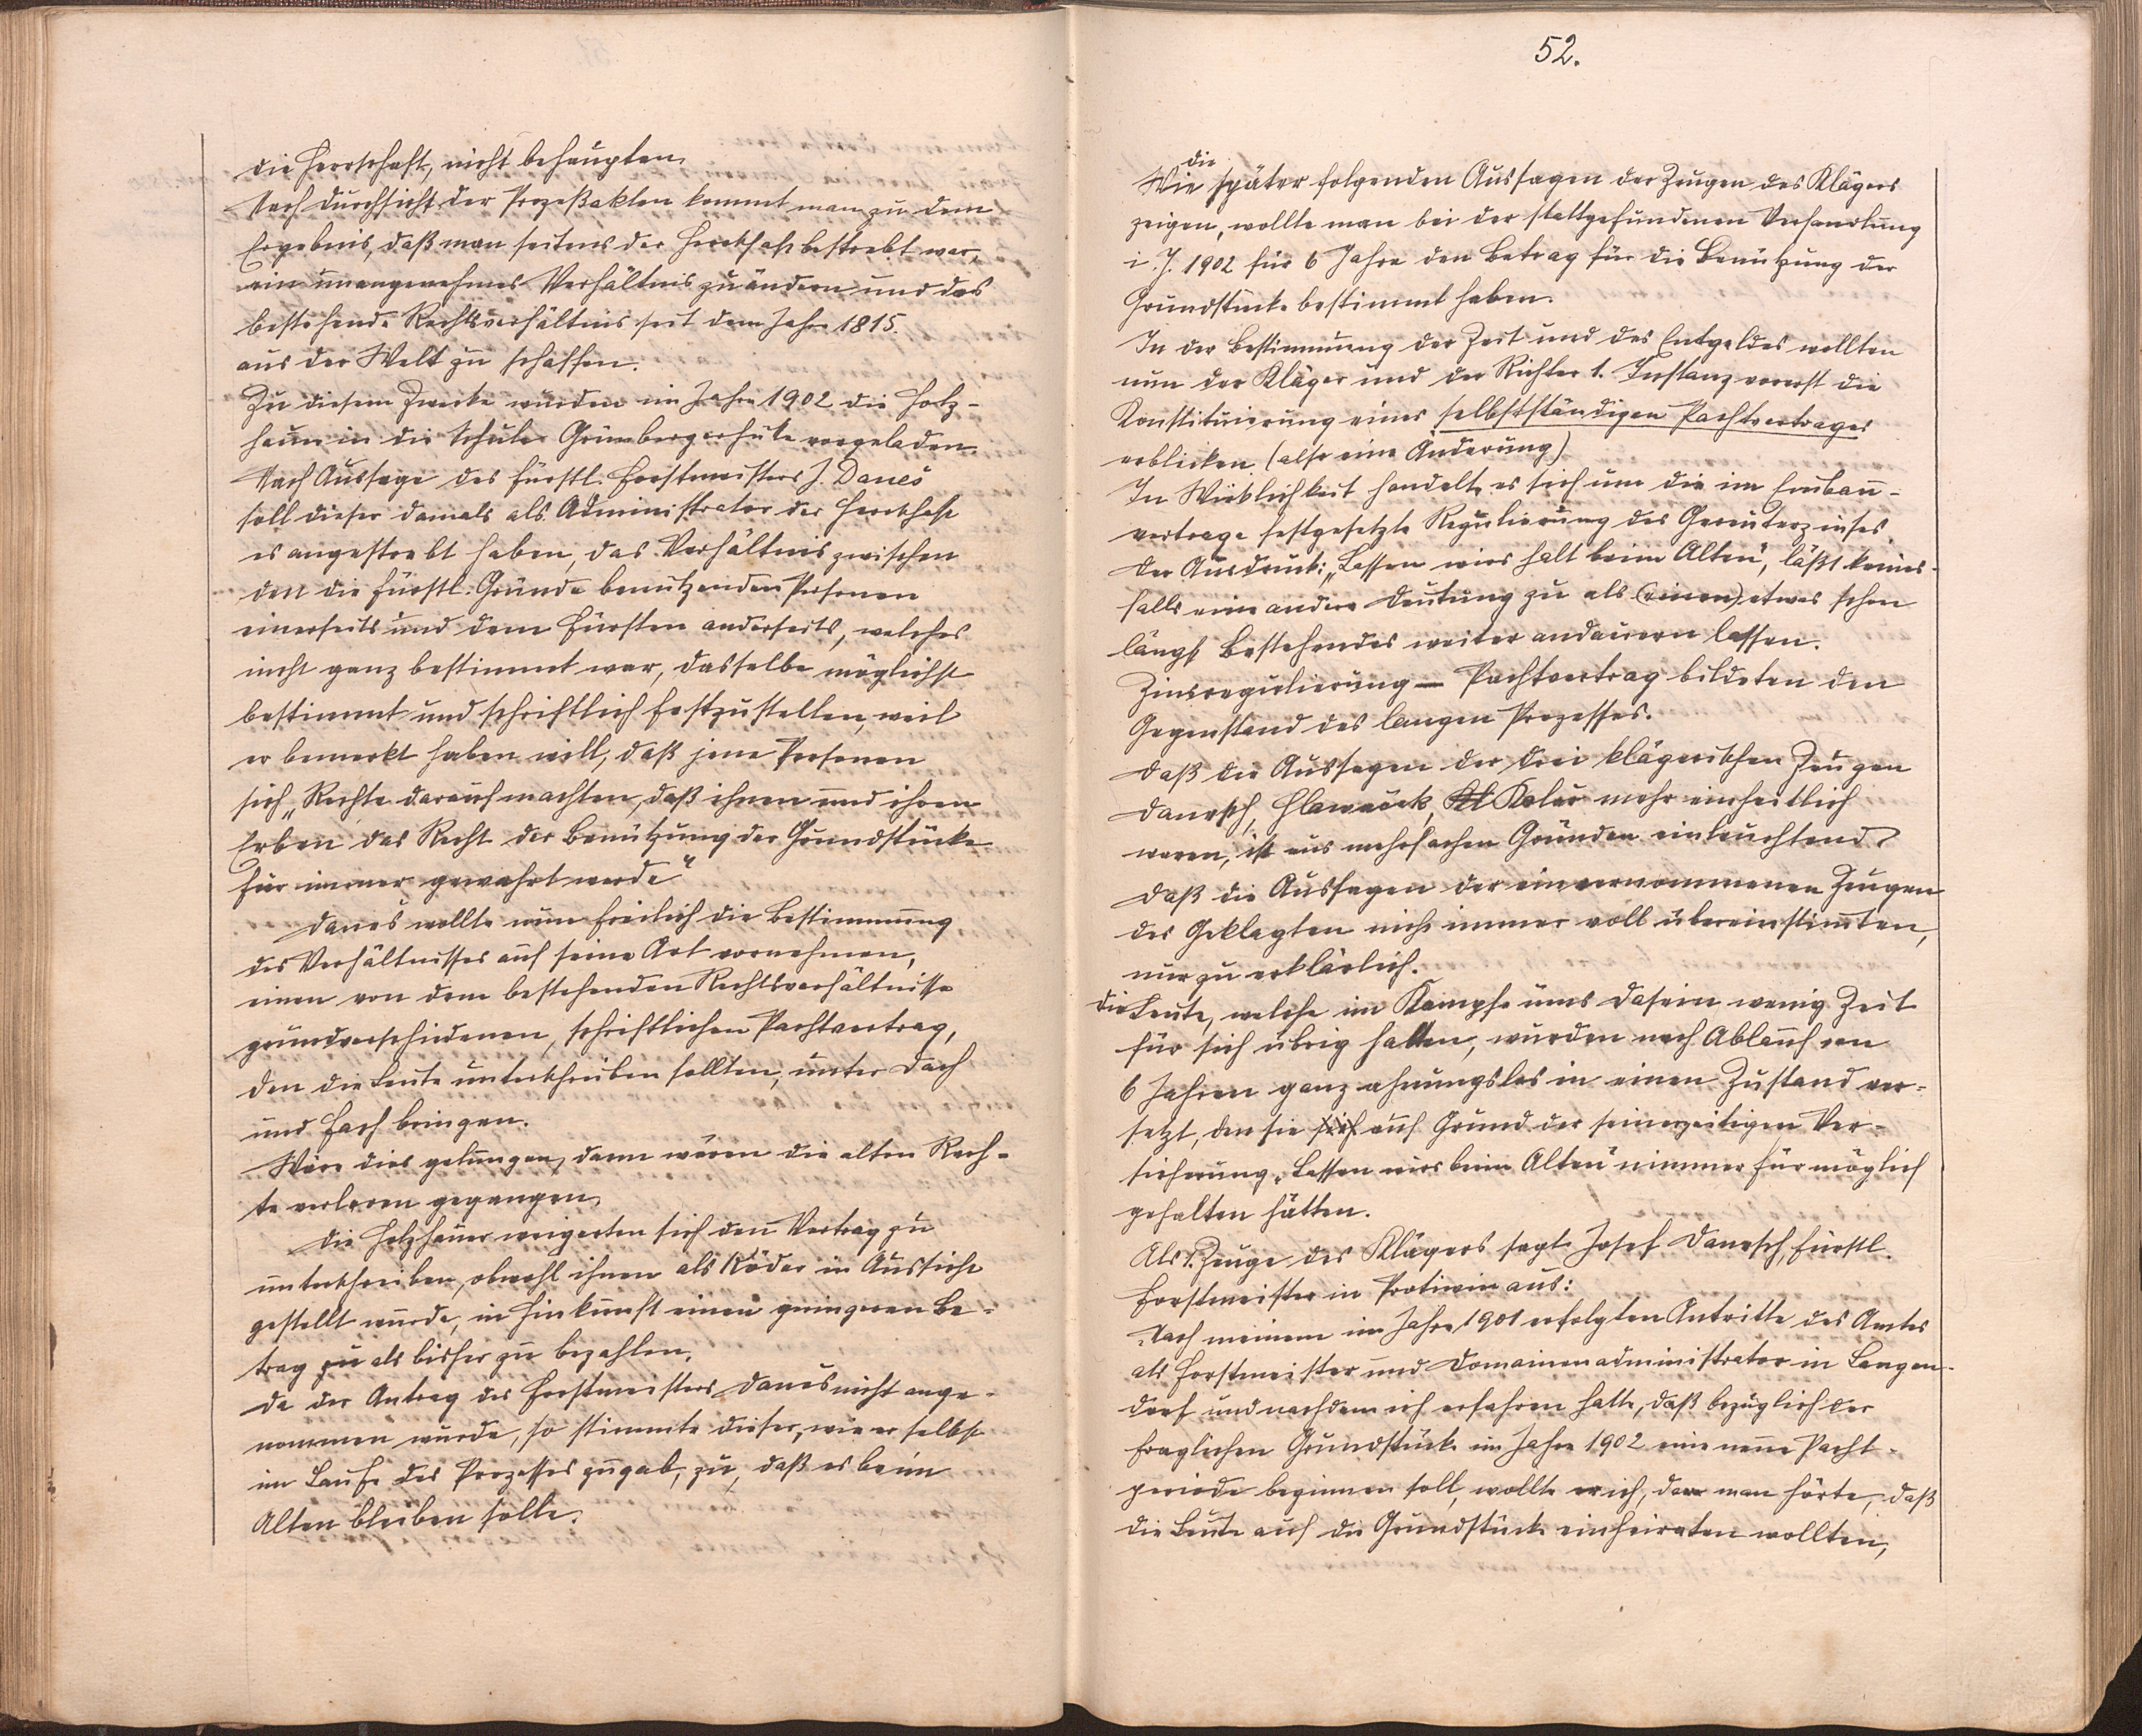 die Herrschaft, nicht behaupten.
Nach Durchsicht der Prozeßakten kommt man zu dem
Ergebnis, daß man seitens der Herrschaft bestrebt war,
ein unangenehmes Verhältnis zu ändern und das
bestehende Rechtsverhältnis seit dem Jahre 1815.
aus der Welt zu schaffen.
Zu diesem Zwecke wurden im Jahre 1902 die Holz-
hauer in die Schule Grünbergerhüte vorgeladen.
Nach Aussage des fürstl. Forstmeisters J. Daneš
soll dieser damals als Administrator der Herrschaft
es angestrebt haben, das Verhältnis zwischen
den die fürstl. Gründe benutzenden Personen
einerseits und dem Fürsten anderseits, welches
nicht ganz bestimmt war, dasselbe möglichst
bestimmt und schriftlich festzustellen, weil
er bemerkt haben will, daß jene Personen
sich „Rechte darauf machten, daß ihnen und ihren
Erben das Recht der Benützung der Grundstücke
für immer gewahrt werde“
Daneš wollte nun freilich die Bestimmung
des Verhältnisses auf seine Art vornehmen,
einen von dem bestehenden Rechtsverhältnisse
grundverschiedenen, schriftlichen Pachtvertrag,
den die Leute unterschreiben sollten, unter Dach
und Fach bringen.
Wäre dies gelungen, dann wären die alten Rech-
te verloren gegangen.
Die Holzhauer weigerten sich den Vertrag zu
unterschreiben, obwohl ihnen als Köder in Aussicht
gestellt wurde, in Hinkunft einen geringeren Be-
trag zu als bisher zu bezahlen.
Da der Antrag des Forstmeisters Daneš nicht ange-
nommen wurde, so stimmte dieser, wie er selbst
im Laufe des Prozesses zugab, zu, daß es beim
Alten bleiben solle.
52.
die
Wie später folgenden Aussagen der Zeugen des Klägers
zeigen, wollte man bei der stattgefundenen Verhandlung
i. J. 1902 für 6 Jahre den Betrag für die Benützung der
Grundstücke bestimmt haben.
In der Bestimmung der Zeit und des Entgeldes wollten
nun der Kläger und der Richter 1. Instanz vorerst die
Konstituierung eines selbstständigen Pachtvertrages
erblicken (also eine Änderung)
In Wirklichkeit handelte es sich um die im Erbbau-
vertrage festgesetzte Regulierung des Gereuterzinses.
Der Ausdruck: „Lassen wirs halt beim Alten“, läßt keines-
falls eine andere Deutung zu als (einen) etwas schon
längst Bestehendes weiter andauern lassen.
Zinsregulierung — Pachtvertrag bildeten den
Gegenstand des langen Prozesses.
Daß die Aussagen der drei klägerischen Zeugen
Danesch, Hlawaček, Kl Kolář mehr einheitlich
waren, ist aus mehrfachen Gründen einleuchtend
Daß die Aussagen der einvernommenen Zeugen
des Geklagten nicht immer voll übereinstimten,
nur zu erklärlich.
Die Leute, welche im Kampfe ums Dasein wenig Zeit
für sich übrig hatten, wurden nach Ablauf von
6 Jahren ganz ahnungslos in einen Zustand ver-
setzt, den sie sich auf Grund der seinerzeitigen Ver-
sicherung „Lassen wirs beim Alten“ nimmer für möglich
gehalten hätten.
Als 1. Zeuge des Klägers sagt Josef Danesch, fürstl.
Forstmeister in Protiwin aus:
„Nach meinem im Jahre 1901 erfolgten Antritte des Amtes
als Forstmeister und Domainenadministrator in Langen-
dorf und nachdem ich erfahren hatte, daß bezüglich der
fraglichen Grundstücke im Jahre 1902 eine neue Pacht-
periode beginnen soll, wollte er ich, da man hörte, daß
die Leute auf die Grundstücke einheiraten wollten,